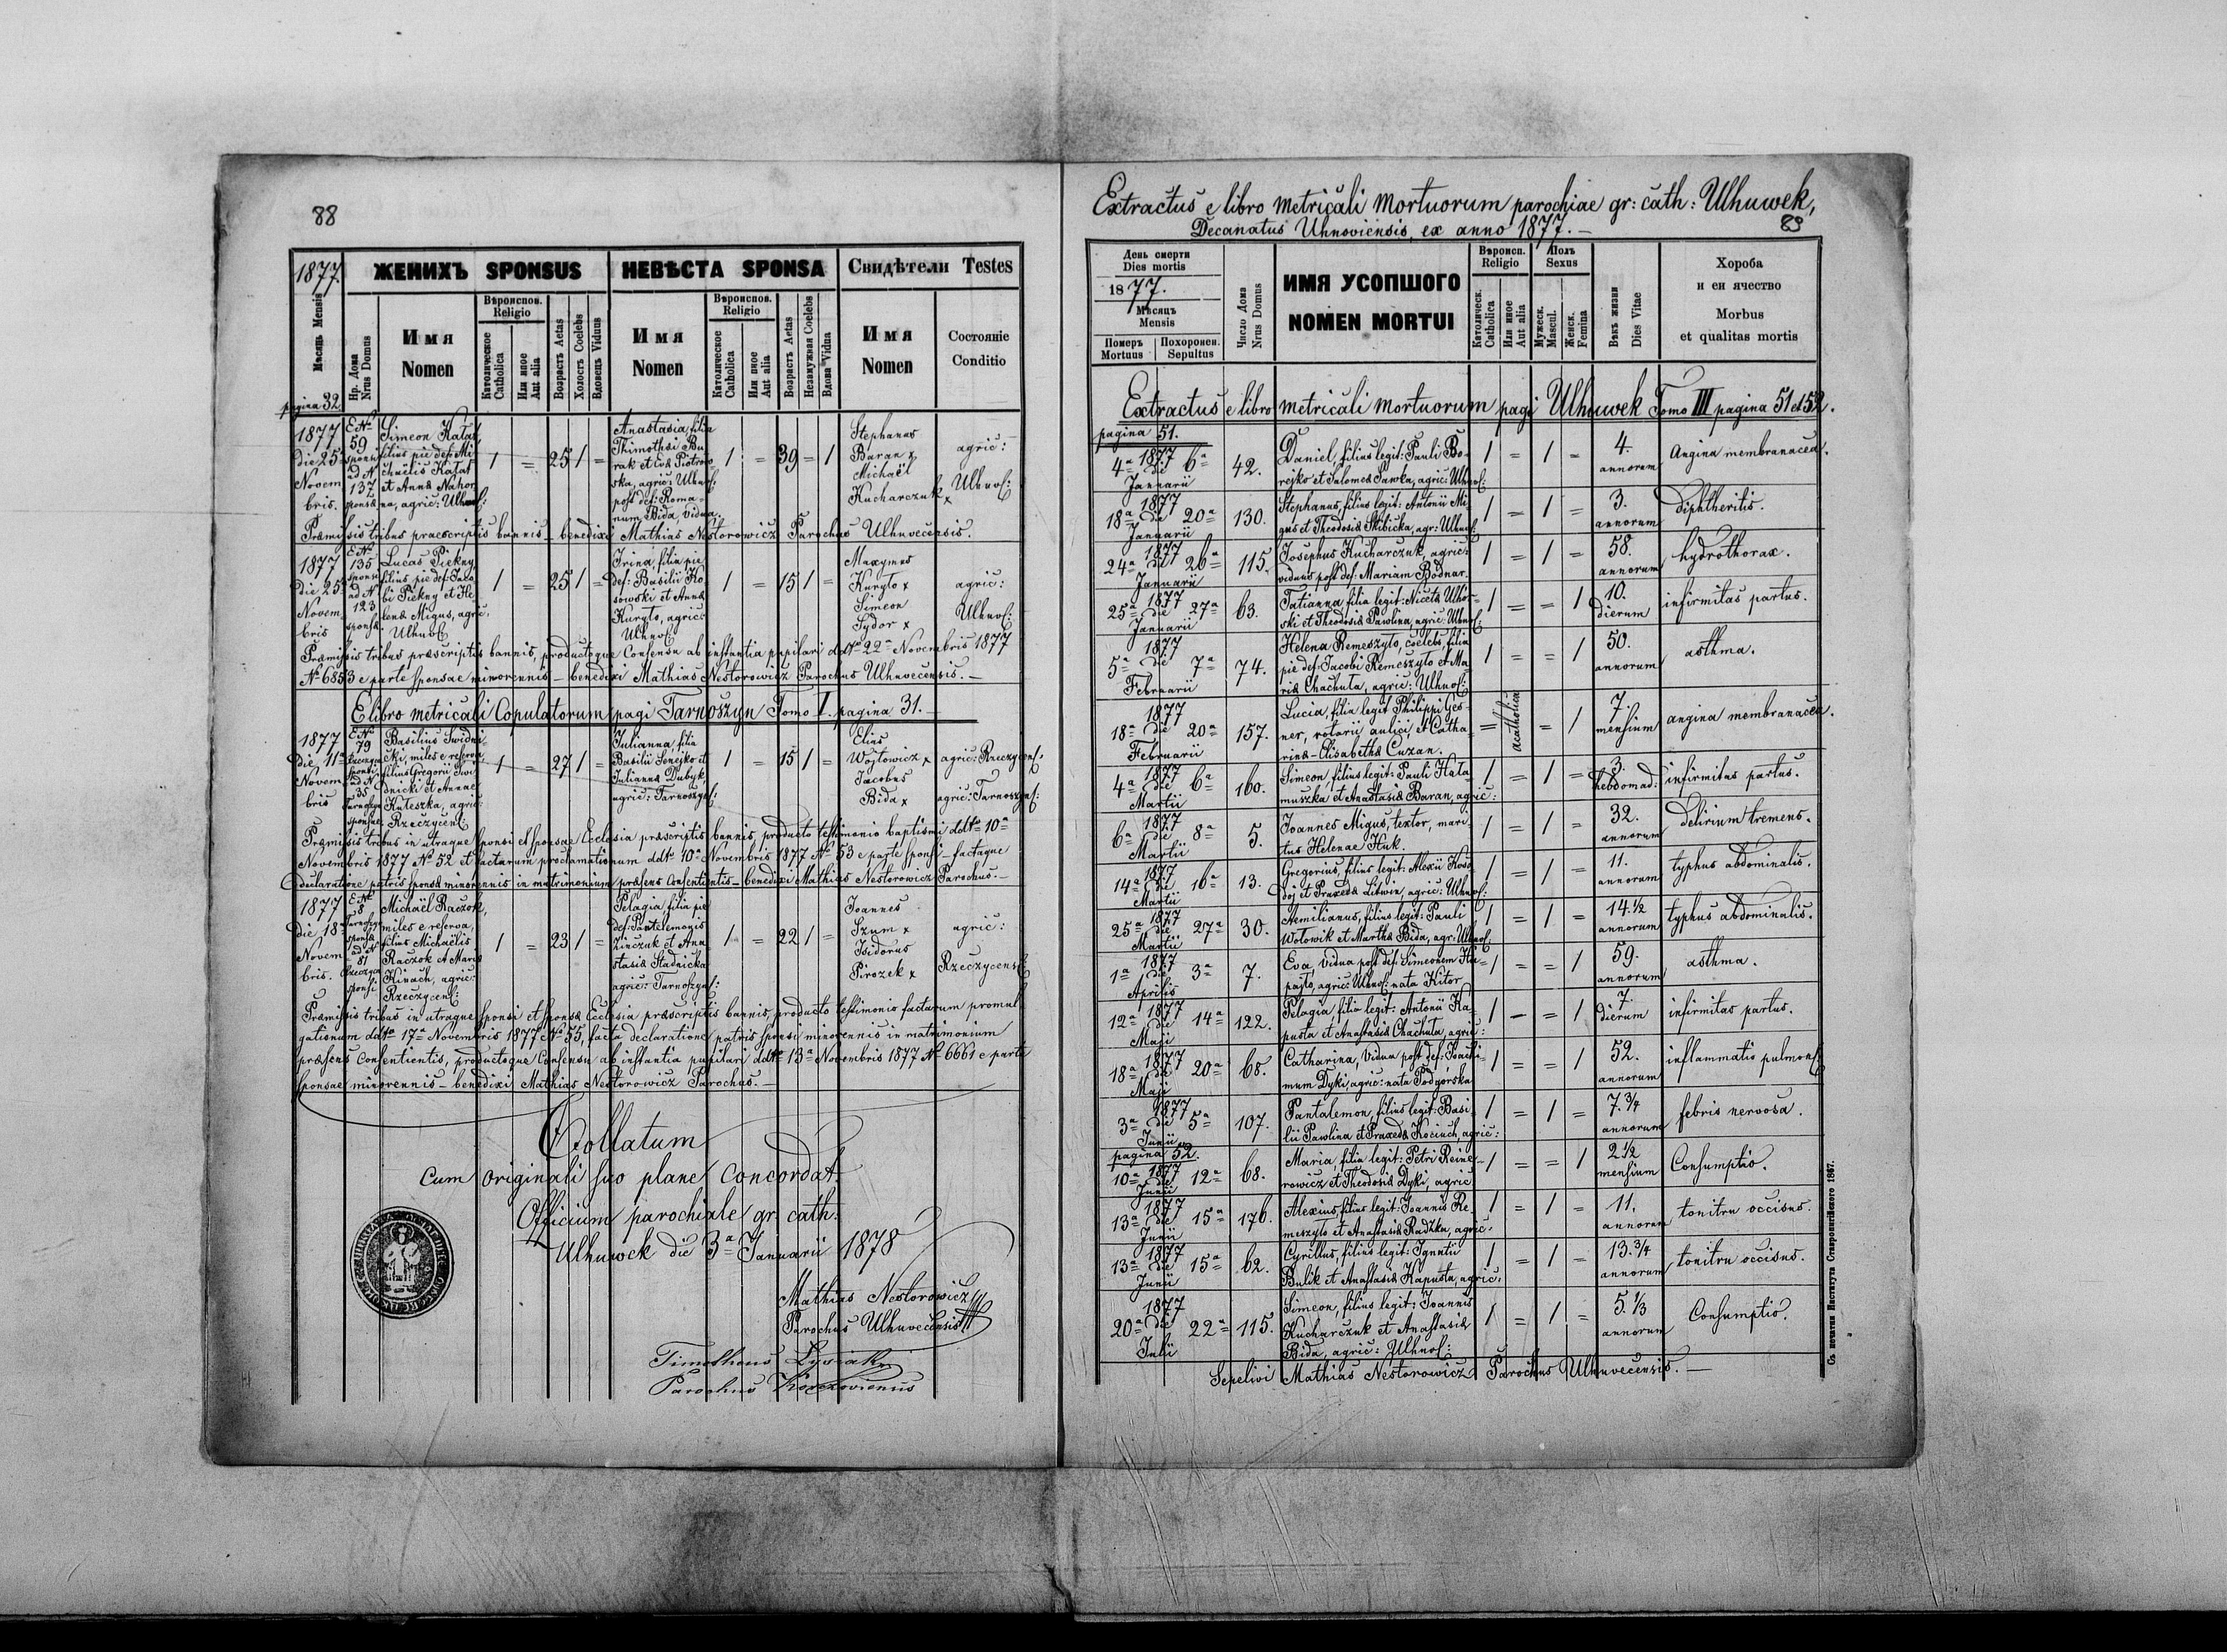 88
1877.
ЖЕНИХЪ SPONSUS
НЕВѢСТА SPONSA
Свидѣтели Testes
Мѣсяцъ Mensis
Нр. Дома
Nrus Domus
Имя
Nomen
Вѣроиспов.
Religio
Католическое
Catholica
Или иное
Aut alia
Возрастъ Aetas
Холостъ Coelebs
Вдовецъ Viduus
Имя
Nomen
Вѣроиспов.
Religio
Католическое
Catholica
Или иное
Aut alia
Возрастъ Aetas
Незамужная Coelebs
Вдова Vidua
Имя
Nomen
Состояніе
Conditio
pagina 32
1877
die 25a
Novem
bris.
E No
59
sponsi
ad N
137
sponsae
Simeon Kałat,
filius pie def: Mi
chaëlis Kałat
et Annae Nahor
na, agric: Ulhuv:
1 = 25 1 =
Anastasia, filia
Thimothei Bu
rak et Eva Piotrow
ska, agric: Ulhuv:
post def: Roma=
num Bida, vidua.
1 = 39 = 1
Stephanus
Baran x
Michaël
Kucharczuk x
agric:
Ulhuv:
Praemissis tribus praescriptis bannis – benedixi Mathias Nestorowicz Parochus Ulhuvecensis.
1877
die 25a
Novem
bris
E No
135
sponsi
ad N
123
sponsae
Lucas Piekny
filius pie def: Jako
bi Piekny et He
lena Migus, agric.
Ulhuv:
1 = 25 1 =
Irina, filia pie
def: Basilii Ko
sowski et Anna
Kuryło, agric:
Ulhuv:
1 = 15 1 =
Maxymus
Kuryło x
Simeon
Sydor x
agric:
Ulhuv:
Praemissis tribus praescriptis bannis, productoque Consensu ab instantia pupilari ddto 22a Novembris 1877
No 6853 e parte sponsae minorennis – benedixi Mathias Nestorowicz Parochus Ulhuvecensis. –
E libro metricali Copulatorum pagi Tarnoszyn Tomo I. pagina 31. –
1877
die 11a
Novem
bris
E No
79
Rzeczyca
sponsi
ad N
35
Tarnoszyn
sponsae
Basilius Swidni
cki, miles e reserva,
filius Gregorii Swi
dnicki et Annae
Kuteszka, agric:
Rzeczycens:
1 = 27 1 =
Julianna, filia
Basilii Senejko et
Julianna Dubyk,
agric: Tarnoszyns:
1 = 15 1 =
Elias
Wojtowicz x
Jacobus
Bida x
agric: Rzeczycens:
agric: Tarnoszyns:
Praemissis tribus in utraque sponsi et sponsae Ecclesia praescriptis bannis, producto testimonio baptismi ddto 10a
Novembris 1877 No 52 et factarum proclamationum ddto 10a Novembris 1877 No 53 e parte sponsi – factaque
declaratione patris sponsae minorennis in matrimonium praesens Consentientis – benedixi Mathias Nestorowicz Parochus. –
1877
die 18a
Novem
bris.
E No
58
Tarnoszyn
sponsae
ad N
81
Rzeczyca
sponsi
Michaël Raczok,
miles e reserva,
filius Michaëlis
Raczok et Maria
Kinach, agric:
Rzeczycens:
1 = 23 1 =
Pelagia, filia pie
def: Pantelemonis
Zinczuk et Ana
stasia Stadnicka
agric: Tarnoszyns:
1 = 22 1 =
Joannes
Szum x
Isidorus
Pirozek x
agric:
Rzeczycens:
Praemissis tribus in utraque sponsi et sponsae Ecclesia praescriptis bannis, producto testimonio factarum promul
gationum ddto 17a Novembris 1877 No 55, facta declaratione patris sponsi minorennis in matrimonium
praesens Consentientis, productoque Consensu ab instantia pupilari ddto 13a Novembris 1877 No 6661 e parte
sponsae minorennis – benedixi Mathias Nestorowicz Parochus. –
Collatum
cum originali suo plane concordat.
Officium parochiale gr. cath:
Ulhuwek die 3a Januarii 1878
Mathias Nestorowicz
Parochus Ulhuvecensis
Timotheus
Parochus
Extractus e libro metricali Mortuorum parochiae gr: cath: Ulhuwek,
Decanatus Uhnoviensis, ex anno 1877. –
89
День смерти
Dies mortis
1877.
Мѣсяцъ
Mensis
Померъ
Mortuus
Похоронен.
Sepultus
Число Дома
Nrus Domus
ИМЯ УСОПШОГО
NOMEN MORTUI
Вѣроисп.
Religio
Католическ.
Catholica
Или иное
Aut alia
Полъ
Sexus
Мужеск.
Mascul.
Женск.
Femina
Вѣкъ жизни
Dies Vitae
Хороба
и еи ячество
Morbus
et qualitas mortis
Extractus e libro metricali mortuorum pagi Ulhuwek Tomo III pagina 51 et 52.
pagina 51.
1877
4a die 6a
Januarii
42.
Daniel, filius legit: Pauli Bo-
rejko et Salomea Sawka, agric: Ulhuv:
1 = 1 =
4.
annorum
Angina membranacea.
1877
18a die 20a
Januarii
130.
Stephanus, filius legit: Antonii Mi
gus et Theodosia Skibicka, agr: Ulhuv:
1 = 1 =
3.
annorum
diphtheritis.
1877
24a die 26a
Januarii
115.
Josephus Kucharczuk, agric:
viduus post def: Mariam Bodnar.
1 = 1 =
58.
annorum
hydrothorax.
1877
25a die 27a
Januarii
63.
Tatianna filia legit: Niceta Uhor-
ski et Theodosia Pawlina, agric: Ulhuv:
1 = = 1
10.
dierum
infirmitas partus.
1877
5a die 7a
Februarii
74.
Helena Remeszyło, coelebs, filia
pie def: Jacobi Remeszyło et Ma
ria Chachuta, agric: Ulhuv:
1 = = 1
50.
annorum
asthma.
1877
18a die 20a
Februarii
157.
Lucia, filia legit Philippi Ges-
ner, rotarii aulici, et Catha
rina-Elisabetha Cuzan.
= acatholica = 1
7.
mensium
angina membranacea.
1877
4a die 6a
Martii
160.
Simeon, filius legit: Pauli Hała
muszka et Anastasia Baran, agric:
1 = 1 =
3.
hebdomad:
infirmitas partus.
1877
6a die 8a
Martii
5.
Joannes Migus, textor, mari
tus Helenae Huk.
1 = 1 =
32.
annorum
delirium tremens.
1877
14a die 16a
Martii
13.
Gregorius, filius legit: Alexii Koso
doj et Praxeda Litwin, agric: Ulhuv:
1 = 1 =
11.
annorum
typhus abdominalis.
1877
25a die 27a
Martii
30.
Aemilianus, filius legit: Pauli
Wołowik et Martha Bida, agr: Ulhuv:
1 = 1 =
14.1/2
annorum
typhus abdominalis.
1877
1a die 3a
Aprilis
7.
Eva, vidua post def: Simeonem Ha-
pajło, agric: Ulhuv: nata Kitor
1 = = 1
59.
annorum
asthma.
1877
12a die 14a
Maji
122.
Pelagia filia legit: Antonii Ka-
pusta et Anastasia Chachuta, agric:
1 – = 1
7.
dierum
infirmitas partus.
1877
18a die 20a
Maji
68.
Catharina, vidua post def: Joachi-
mum Dyki, agric: nata Podgórska
1 = = 1
52.
annorum
inflammatio pulmon:
1877
3a die 5a
Junii
107.
Pantalemon, filius legit: Basi-
lii Pawlina et Praxeda Kociuch, agric:
1 = 1 =
7.3/4
annorum
febris nervosa.
pagina 52.
1877
10a die 12a
Junii
68.
Maria, filia legit: Petri Reine-
rowicz et Theodosia Dyki, agric
1 = = 1
2 1/2
mensium
Consumptio.
1877
13a die 15a
Junii
176.
Alexius, filius legit: Joannis Re-
meszyło et Anastasia Radzka, agric:
1 = 1 =
11.
annorum
tonitru occisus.
1877
13a die 15a
Junii
62.
Cyrillus, filius legit: Ignatii
Bulik et Anastasia Kapusta, agric:
1 = 1 =
13.3/4
annorum
tonitru occisus.
1877
20a die 22a
Julii
115.
Simeon, filius legit: Joannis
Kucharczuk et Anastasia
Bida, agric: Ulhuv:
1 = 1 =
5.1/3
annorum
Consumptio.
Sepelivi Mathias Nestorowicz Parochus Ulhuvecensis. –
Съ печатни Института Ставропигійского 1867.